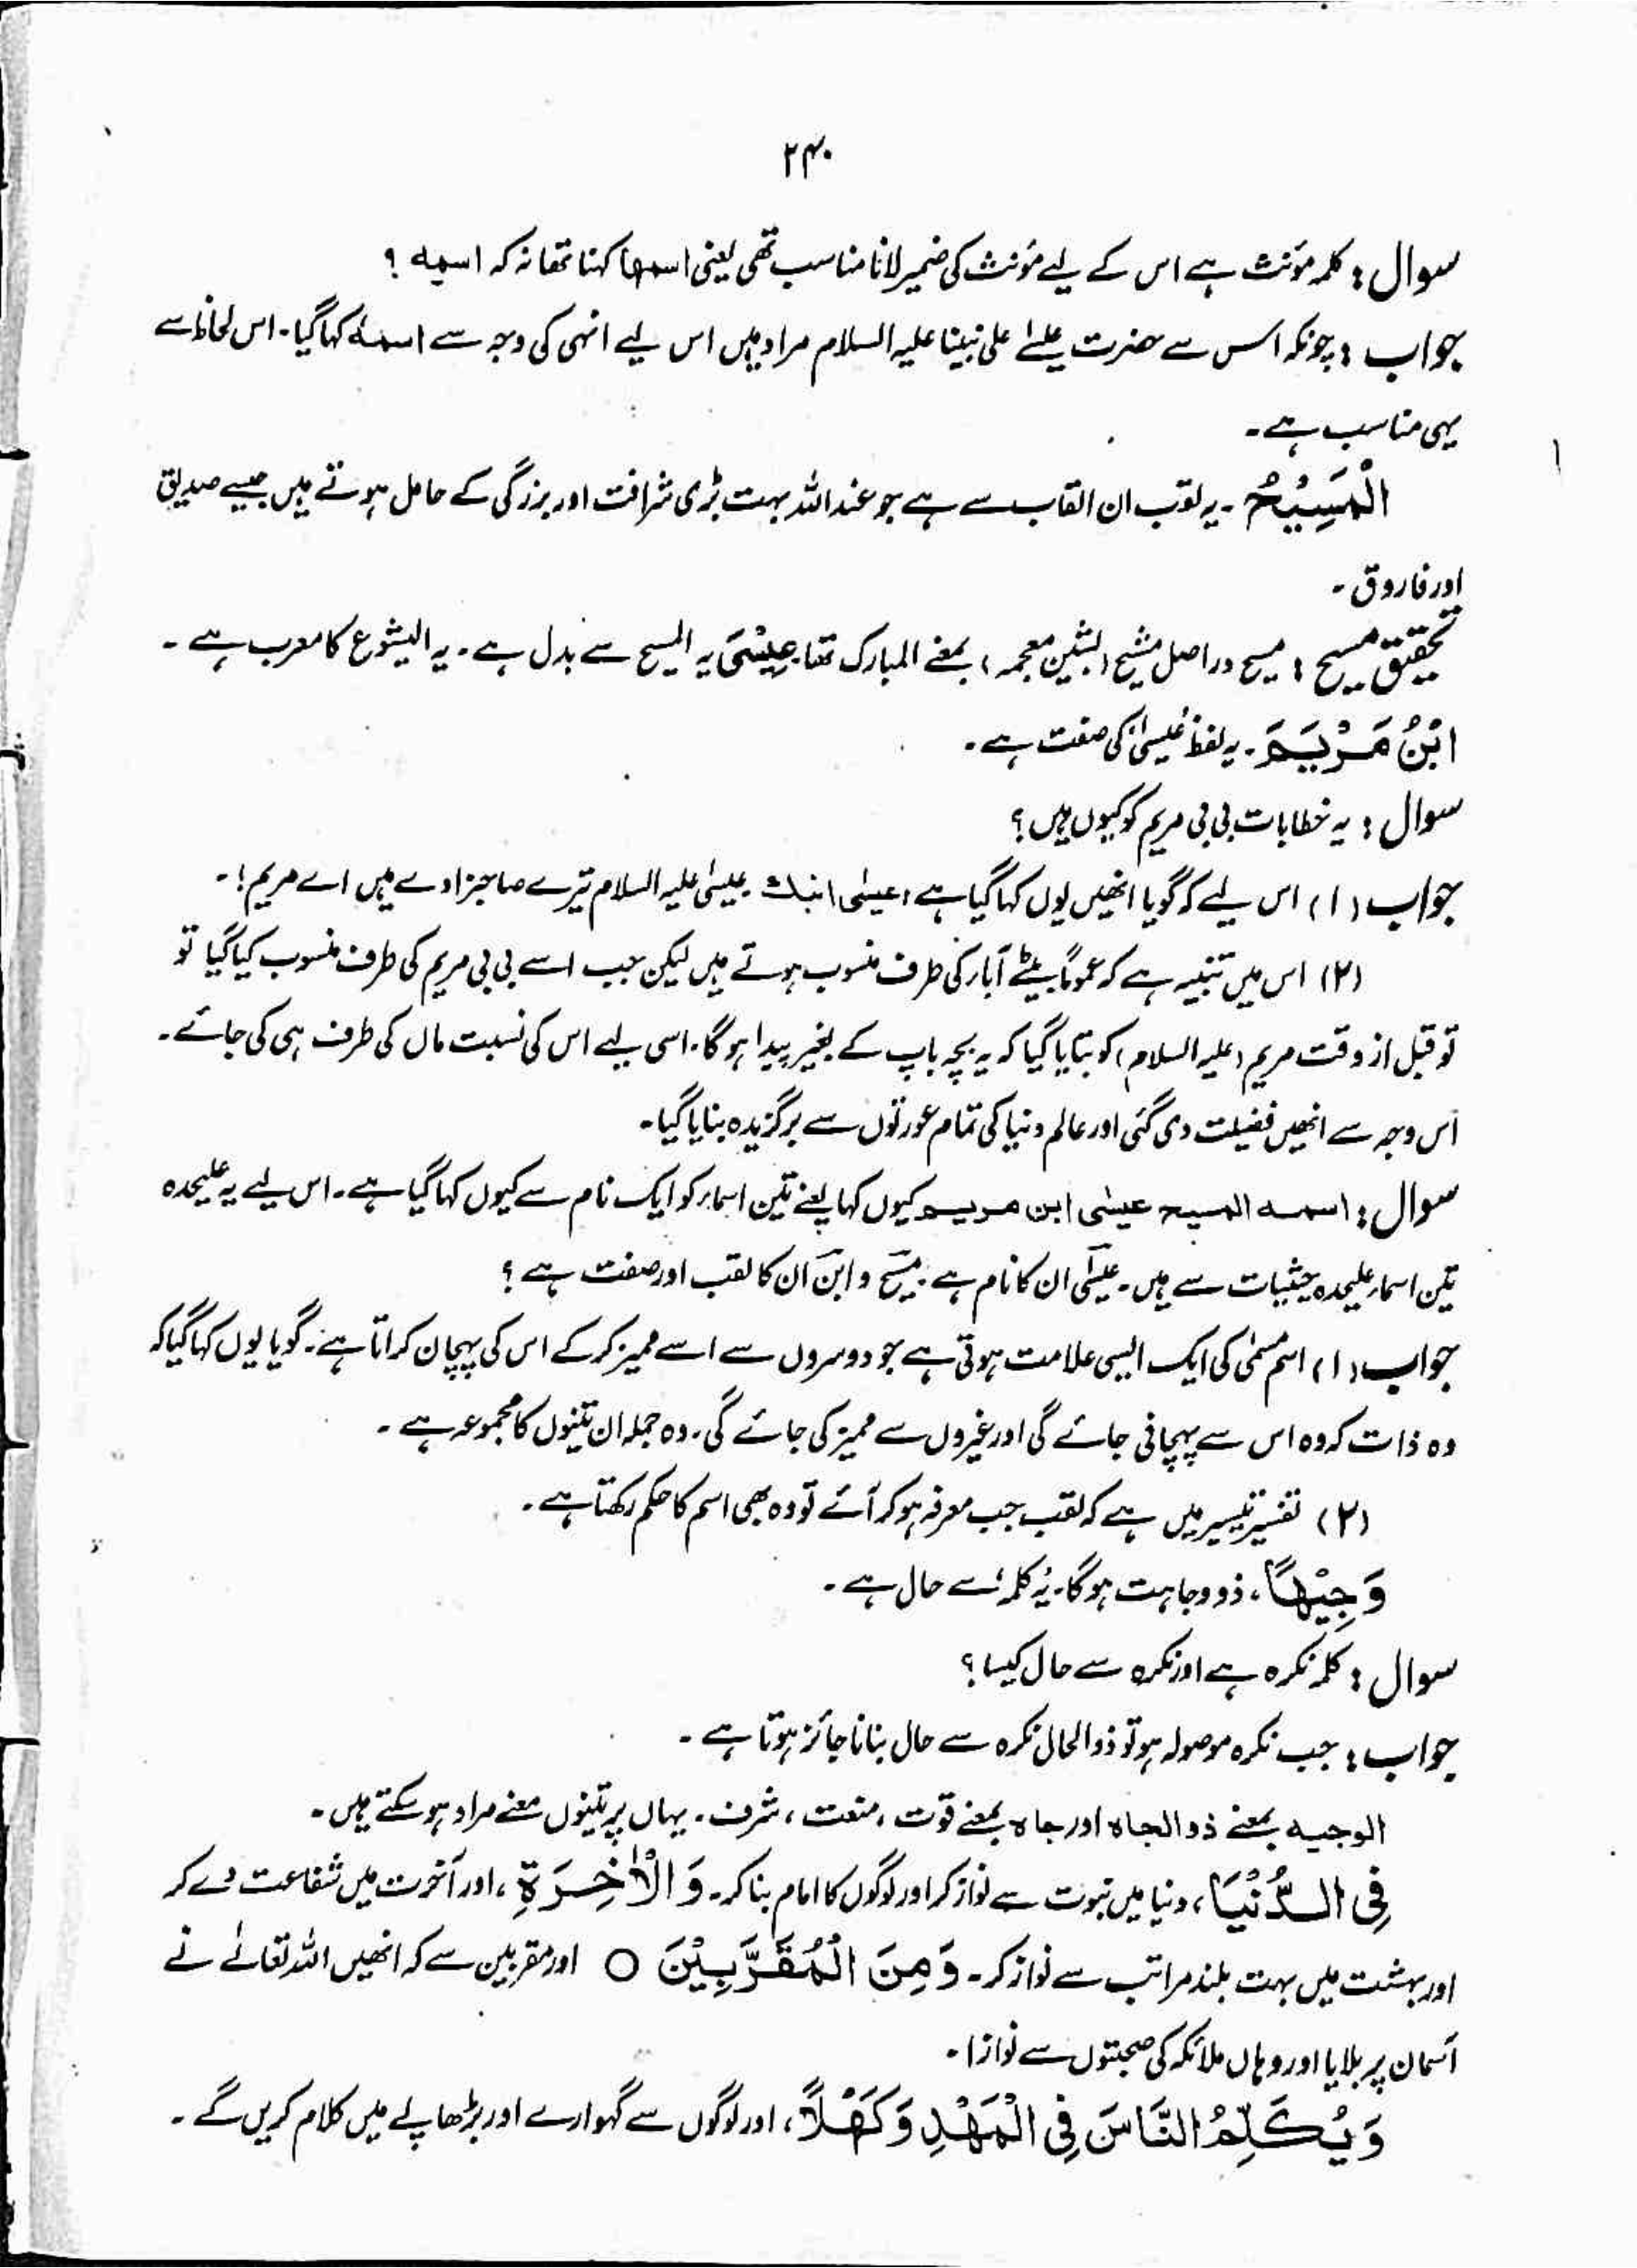 ۲۴۰
سوال : کلمہ مؤنث ہے اس کے لیے مؤنث کی ضمیر لانا مناسب تھی یعنی اسمھا کہنا تھا نہ کہ اسمه ؟
جواب : چونکہ اس سے حضرت عیسےٰ علیٰ نبینا علیہ السلام مراد ہیں اس لیے انہی کی وجہ سے اسمهٗ کہا گیا۔ اس لحاظ سے
یہی مناسب ہے۔
الْمَسِيْحُ ۔ یہ لقب ان القاب سے ہے جو عند اللہ بہت بڑی شرافت اور بزرگی کے حامل ہوتے ہیں جیسے صدیق
اور فاروق ۔
تحقیق مسیح : مسیح در اصل مشیح (بشین معجمہ) بمعنے المبارک تھا۔ عِيْسٰى یہ المسیح سے بدل ہے۔ یہ الیشوع کا معرب ہے ۔
ابْنُ مَرْيَمَ ۔ یہ لفظ عیسیٰ کی صفت ہے۔
سوال : یہ خطابات بی بی مریم کو کیوں ہیں؟
جواب (۱) اس لیے کہ گویا انھیں یوں کہا گیا ہے، عیسٰی ابنك عیسیٰ علیہ السلام تیرے صاحبزادے ہیں اے مریم! ۔
(۲) اس میں تنبیہ ہے کہ عموماً بیٹے آباء کی طرف منسوب ہوتے ہیں لیکن جب اسے بی بی مریم کی طرف منسوب کیا گیا تو
تو قبل از وقت مریم (علیہ السلام) کو بتایا گیا کہ یہ بچہ باپ کے بغیر پیدا ہوگا۔ اسی لیے اس کی نسبت ماں کی طرف ہی کی جائے۔
اس وجہ سے انھیں فضیلت دی گئی اور عالم دنیا کی تمام عورتوں سے برگزیدہ بنایا گیا۔
سوال : اسمه المسیح عیسٰی ابن مریم کیوں کہا یعنے تین اسماء کو ایک نام سے کیوں کہا گیا ہے۔ اس لیے یہ علیحدہ
تین اسماء علیحدہ حیثیات سے ہیں۔ عیسیٰ ان کا نام ہے۔ مسیح و ابن ان کا لقب اور صفت ہے ؟
جواب (۱) اسم مسمّٰی کی ایک ایسی علامت ہوتی ہے جو دوسروں سے اسے ممیز کرکے اس کی پہچان کراتا ہے۔ گویا یوں کہا گیا کہ
وہ ذات کہ وہ اس سے پہچانی جائے گی اور غیروں سے ممیز کی جائے گی، وہ جملہ ان تینوں کا مجموعہ ہے ۔
(۲) تفسیر تیسیر میں ہے کہ لقب جب معرفہ ہو کر آئے تو وہ بھی اسم کا حکم رکھتا ہے۔
وَجِيْهًا، ذو وجاہت ہوگا۔ یہ کلمہ سے حال ہے ۔
سوال : کلمہ نکرہ ہے اور نکرہ سے حال کیسا ؟
جواب : جب نکرہ موصولہ ہو تو ذوالحال نکرہ سے حال بنانا جائز ہوتا ہے ۔
الوجیه بمعنے ذو الجاه اور جاہ بمعنے قوت ، منعت ، شرف ۔ یہاں پر تینوں معنے مراد ہو سکتے ہیں۔
فِى الدُّنْيَا، دنیا میں نبوت سے نواز کر اور لوگوں کا امام بنا کر۔ وَالْاٰخِرَةِ ، اور آخرت میں شفاعت دے کر
اور بہشت میں بہت بلند مراتب سے نواز کر۔ وَمِنَ الْمُقَرَّبِيْنَ ○ اور مقربین سے کہ انھیں اللہ تعالےٰ نے
آسمان پر بلایا اور وہاں ملائکہ کی صحبتوں سے نوازا۔
وَيُكَلِّمُ النَّاسَ فِى الْمَهْدِ وَكَهْلًا، اور لوگوں سے گہوارے اور بڑھاپے میں کلام کریں گے ۔